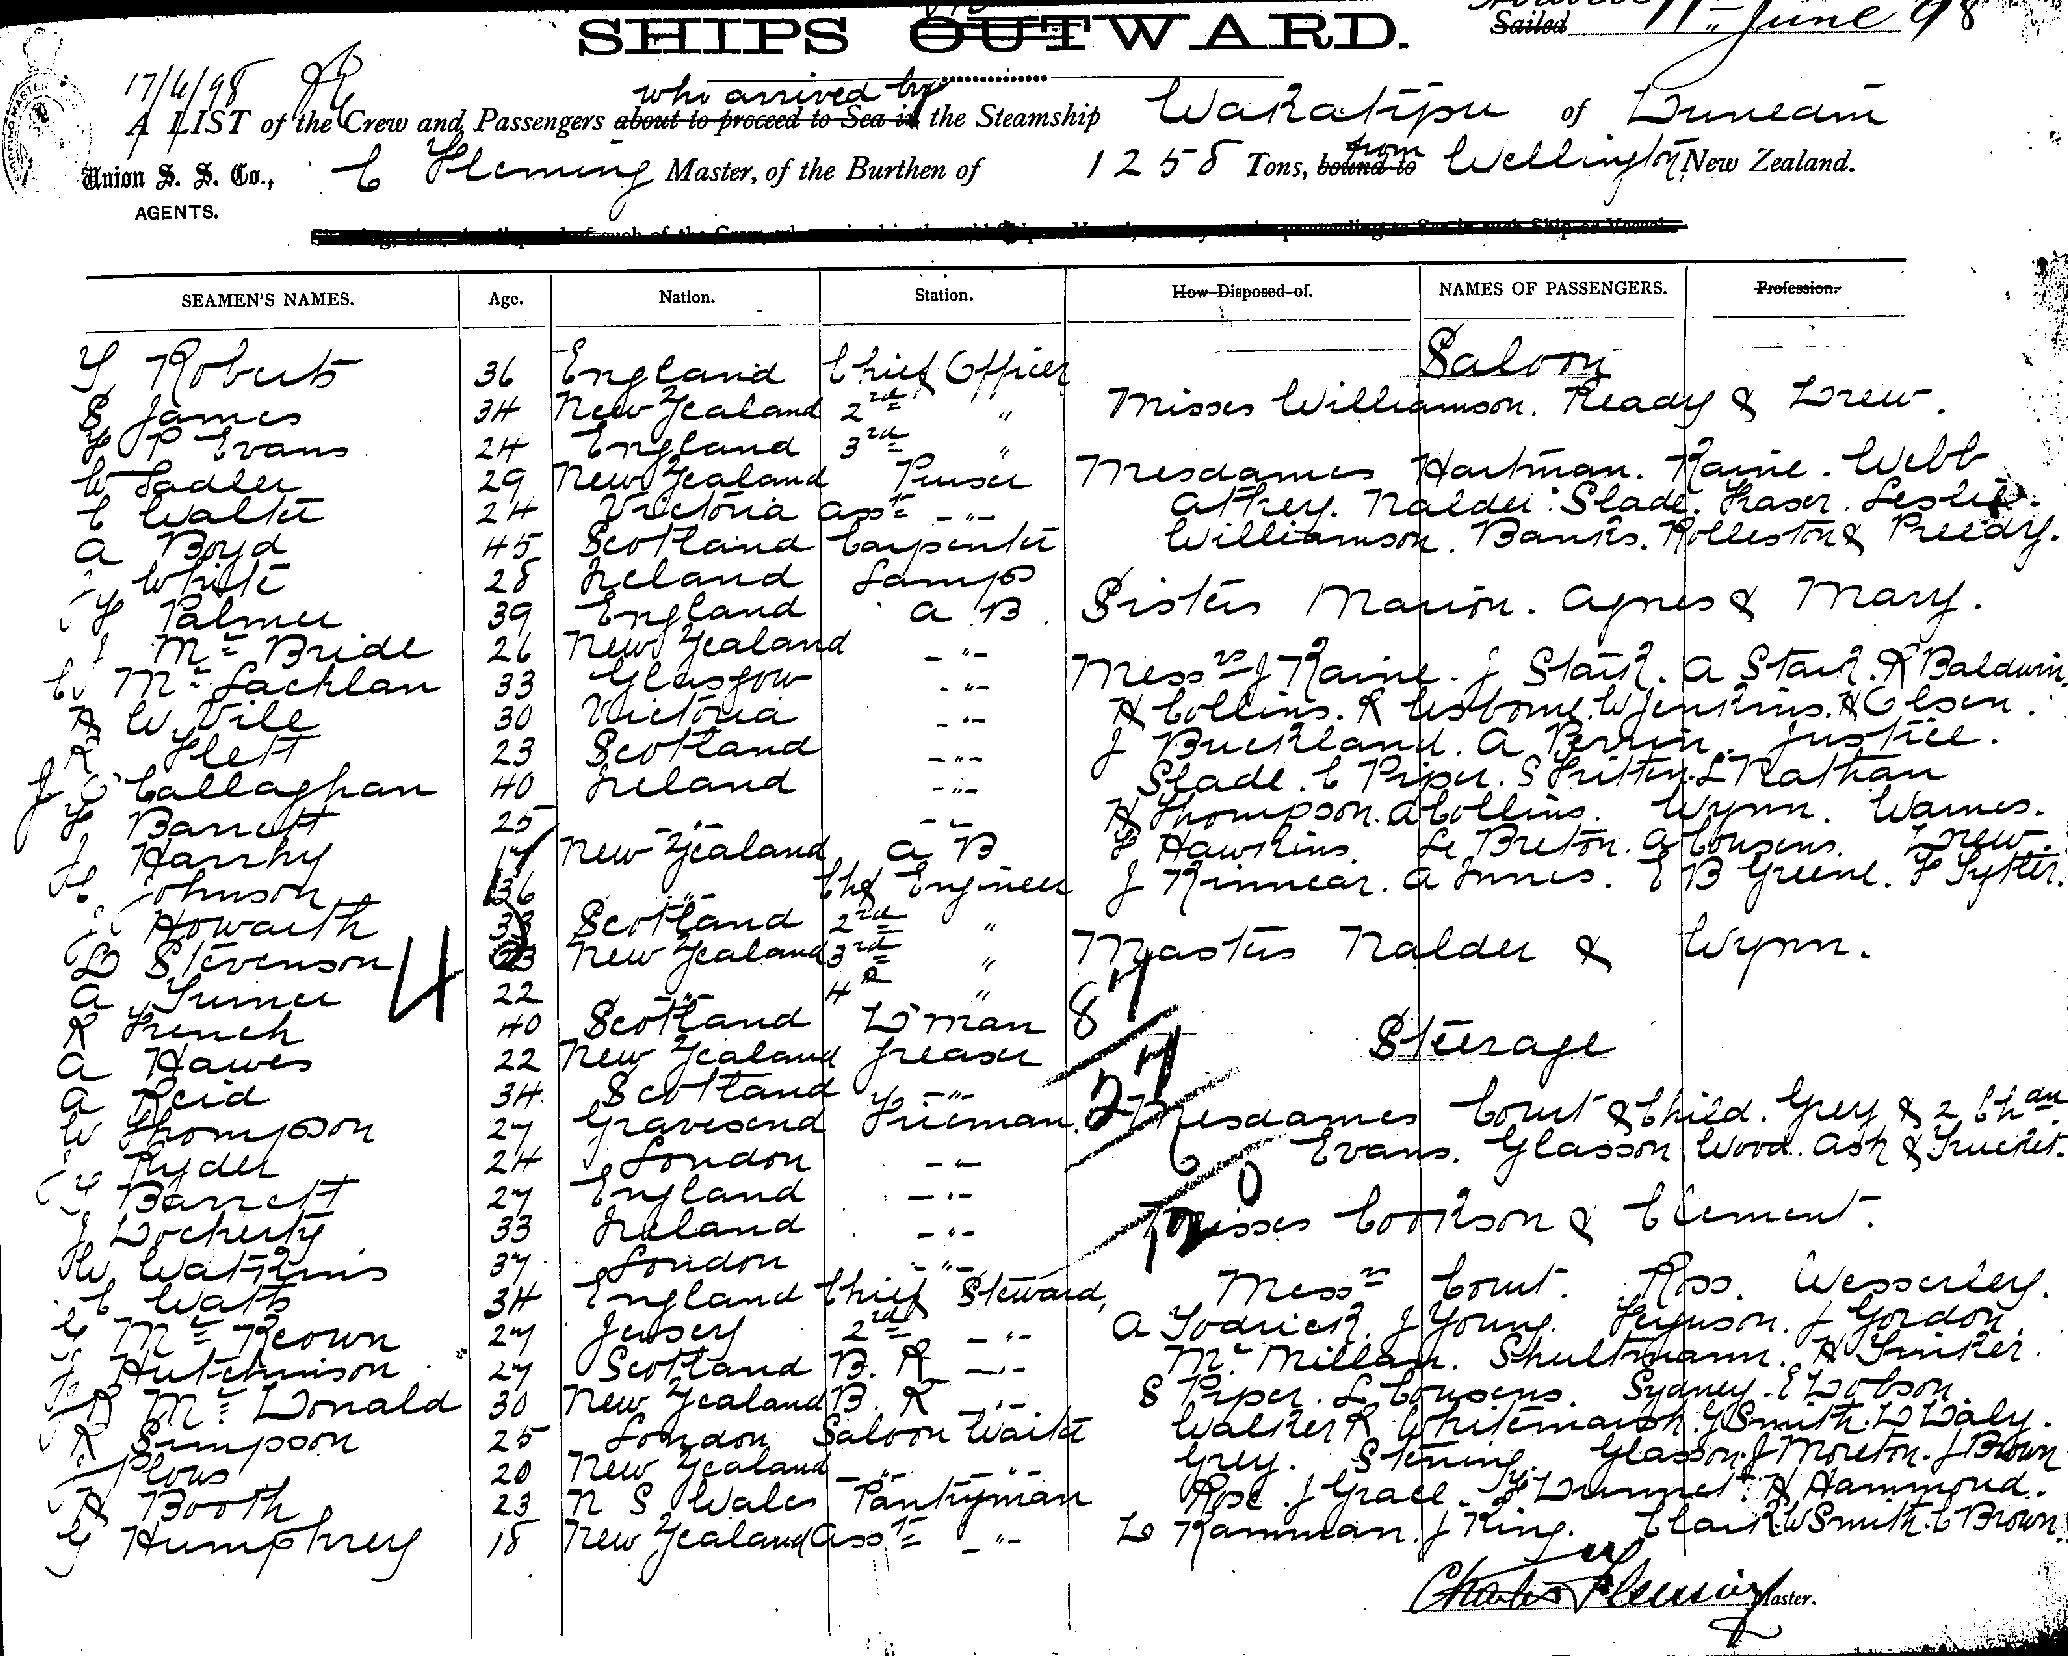 SHIPS OUTWARD.
Sailed 11th June 98
17/6/98
who arrived by
A LIST of the Crew and Passengers about to proceed to Sea in the Steamship Wakatipu of Dunedin
from
Union S. S. Co., C Fleming Master, of the Burthen of 1258 Tons, bound to Wellington New Zealand.
AGENTS.
SEAMEN'S NAMES. Age. Nation. Station. How Disposed of. NAMES OF PASSENGERS. Profession.
Roberts 36 England Chief Officer
S James 34 New Zealand 2nd "
P Evans 24 England 3rd "
W Sadler 29 New Zealand Purser
C Walter 24 Victoria Asst -"-
A Boyd 45 Scotland Carpenter
White 28 Ireland Lamps
Palmer 39 England A B
McBride 26 New Zealand -"-
McLachlan 33 Glasgow -"-
W Vile 30 Victoria -"-
R Flett 23 Scotland -"-
J O'Callaghan 40 Ireland -"-
Barrett 25 -"- -"-
J Harrhy 17 New Zealand A B
Johnson 36 -"- Chf Engineer
Howarth 33 Scotland 2nd "
D Stevenson 23 New Zealand 3rd "
4
A Turner 22 -"- 4th "
R French 40 Scotland D'man
A Hawes 22 New Zealand Greaser
A Reid 34 Scotland -"-
W Thompson 27 Gravesend Fireman
Ryder 24 London -"-
Barrett 27 England -"-
J Docherty 33 Ireland -"-
W Watkins 37 London -"-
C Watts 34 England Chief Steward,
McKeown 27 Jersey 2nd -"-
Hutchinson 27 Scotland B. R -"-
R McDonald 30 New Zealand B. R -"-
R Simpson 25 London Saloon Waiter
Plows 20 New Zealand -"- -"-
A Booth 23 N S Wales Pantryman
G Humphrey 18 New Zealand Asst -"-
Saloon
Misses Williamson. Ready & Drew.
Mesdames Hartman. Raine. Webb
Athey. Nalder. Slade. Fraser. Leslie.
Williamson. Banks. Rolleston & Preedy.
Sisters Marion. Agnes & Mary.
Messrs J Raine. J Stark. A Stark. R Baldwin.
H Collins. R Usborne. W Jenkins. H Olsen.
J Buckland. A Perrin. Justice.
Slade. C Piper. S Fritten. L Nathan
H Thompson. A Collins. Wynn. Warnes.
F Hawkins. Le Breton. A Cousens. Drew.
J Kinnear. A Innes. E B Greene. F Sytter.
Masters Nalder & Wynn.
87
Steerage
27
Mesdames Court & Child. Grey & 2 Chdn
Evans. Glasson Wood. Ash & Trucker.
Misses Cookson & Clement.
Messrs Court. Ross. Wesserley.
A Todrick. J Young. Ferguson. J Gordon.
McMillan. Shultmann. H Tinker.
S Piper. L Cousens. Sydney. E Dobson.
Walker R Whitemarsh. G Smith. D Daly.
Grey. Stening. Glasson. J Moreton. J Brown
Rose. J Grace. Dunnet. H Hammond.
D Kamman. J King. Clark W Smith. C Brown.
Charles Fleming Master.